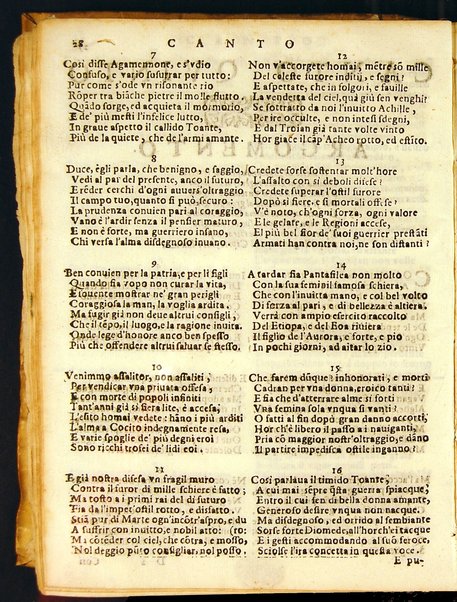 28 CANTO
7
Cosi disse Agamennone, e s'vdio
Confuso, e vario susurrar per tutto:
Pur come s'ode vn risonante rio
Rõper tra biãche pietre il molle flutto.
Quãdo sorge, ed acquieta il mormorio,
E de' più mesti l'infelice lutto,
In graue aspetto il callido Toante,
Di pace qualità, che de l'armi amante.
8
Duce, egli parla, che benigno, e saggio,
Vedi al par del presente, anco il futuro,
Erẽder cerchi d'ogni auuers'oltraggio
Il campo tuo, quanto si può, securo:
La prudenza conuien pari al coraggio,
Vano è l'ardir senza il pensier maturo,
E non è forte, ma guerriero insano,
Chi versa l'alma disdegnoso inuano.
9
Ben conuien per la patria, e per li figli
Quando sia vopo non curar la vita,
E souente mostrar ne' gran perigli
Coraggiosa la man, la voglia ardita.
Ma fugir già non deue altrui consigli,
Che il tẽpo, il luogo, e la ragione inuita.
Onde lege d'honore anco ben spesso
Più che offendere altrui saluar se stesso.
10
Venimmo assalitor, non assaliti,
Per vendicar vna priuata offesa;
E con morte di popoli infiniti
Tant'anni già sì fiera lite, è accesa;
L'esito homai vedete: hãno i più arditi
L'alma a Cocito indegnamente resa,
E varie spoglie de' più degni eroi
Sono ricchi trofei de' lidi eoi.
11
E già nostra difesa vn fragil muro
Contra il furor di mille schiere è fatto;
Ma tosto a i primi rai del dì futuro
Fia dall'impeto ostil rotto, e disfatto.
Stia pur di Marte ogn'incõtr'aspro, e du
A suffrir con inuitto, e nobil atto: (ro:
Ma cõtẽder col ciel, che cõtra, e mosso,
Nol deggio punto consigliar, nol posso.
12
Non v'accorgete homai, mẽtre sõ mille
Del celeste furore inditij, e segni?
E aspettate, che in folgori, e fauille
La vendetta del ciel, quà giù sen venghi?
Se sottratto da noi l'inuitto Achille,
Per ire occulte, e non intesi sdegni,
E dal Troian già tante volte vinto
Hor giace il cãp'Acheo rotto, ed estito.
13
Credete forse sostentar molt'hore
L'assalto con sì deboli difese?
Credete superar l'ostil furore
Dopò sì fiere, e sì mortali offese?
V'è noto, ch'ogni forza, ogni valore
E le gelate, e le Regioni accese,
E'l più bel fior de' suoi guerrier prestãti
Armati han contra noi, ne son distanti?
14
A tardar fia Pantasilea non molto
Con la sua feminil famosa schiera,
Che con l'inuitta mano, e col bel volto
Di forza al pari, e di bellezza è altiera.
Verrà con ampio esercito raccolto
Del Etiopa, e del Eoa riuiera
Il figlio de l'Aurora, e forte, e pio
In pochi giorni, ad aitar lo zio.
15
Che farem dũque? inhonorati, e morti
Cadran per vna donna, eroico tanti?
E fia che d'atterrare alme sì forti
Vna femina sola vnqua si vanti?
O fatti al fin dopò gran danno accorti,
Hor ch'è libero il passo a i nauiganti,
Pria cõ maggior nostr'oltraggio, e dãno
Il partire impedisca ostile inganno.?
16
Così parlaua il timido Toante;
A cui mai sẽpre q̃sta guerra spiacque;
Entro il cui sen di bella donna amante,
Generoso desire vnqua non nacque.
Ma disdegnoso, ed orrido al sembiante
Sorse forte Diomede, all'horch'ei tacque
Ei gesti accommodando al suõ feroce,
Sciolse l'ira concetta in questa voce.
E pu-